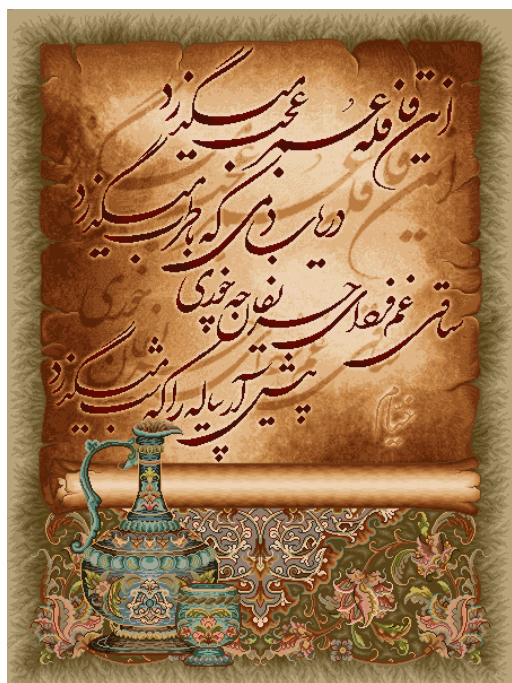 این قافله عمر عجب میگذرد
دریاب دمی که با طرب میگذرد
ساقی غم فردای حریفان چه خوری
پیش آر پیاله را که شب میگذرد
خیام